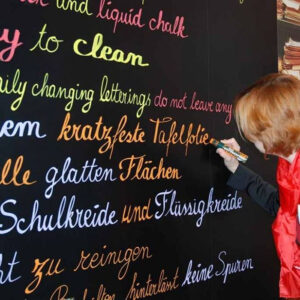 and liquid chalk
to clean
daily changing letterings do not leave any
kratzfeste Tafelfolie
glatten Flächen
Schulkreide und Flüssigkreide
zu reinigen
hinterlässt keine Spuren